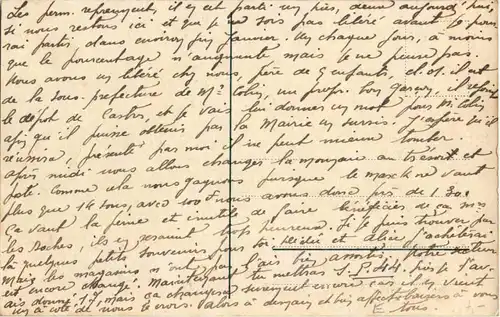 Les perm. reprennent, il en est parti un pris, deux aujourd'hui,
si nous restons ici et que je ne sois pas libéré avant je pour
rai partir dans environ Janvier. chaque jour, à moins
que le pourcentage n'augmente mais je ne pense pas.
Nous avons un libéré chez nous, père de 5 enfants, il est
de la sous-préfecture de Mr Colin, un propr. bon garçon, il rejoint
le dépôt de Castres, et je vais lui donner un mot pour Mr Colin
afin qu'il puisse obtenir par la Mairie un sursis. J'espère qu'il
réussira, présenté par moi il ne peut mieux tomber.
après midi nous allons changer la monnaie au trésor et
poste. Comme cela nous gagnons puisque le mark ne vaut
plus que 14 sous, avec 100 f nous avons donc près de 130.
Ça vaut la peine et inutile de faire bénéficier de ça Mrs
les Boches, ils en seraient trop heureux. Si je puis trouver par
là quelques petits souvenirs pour toi j'achèterai
Mais les magasins n'ont pas l'air bien assortis. Notre secteur
est encore changé. Maintenant tu mettras S.P. 44. puis je t'av-
ais donné 17, mais ça changera surement encore car on en vient
un à côté de nous je crois. alors à demain et bien affectx baisers à vous
tous.